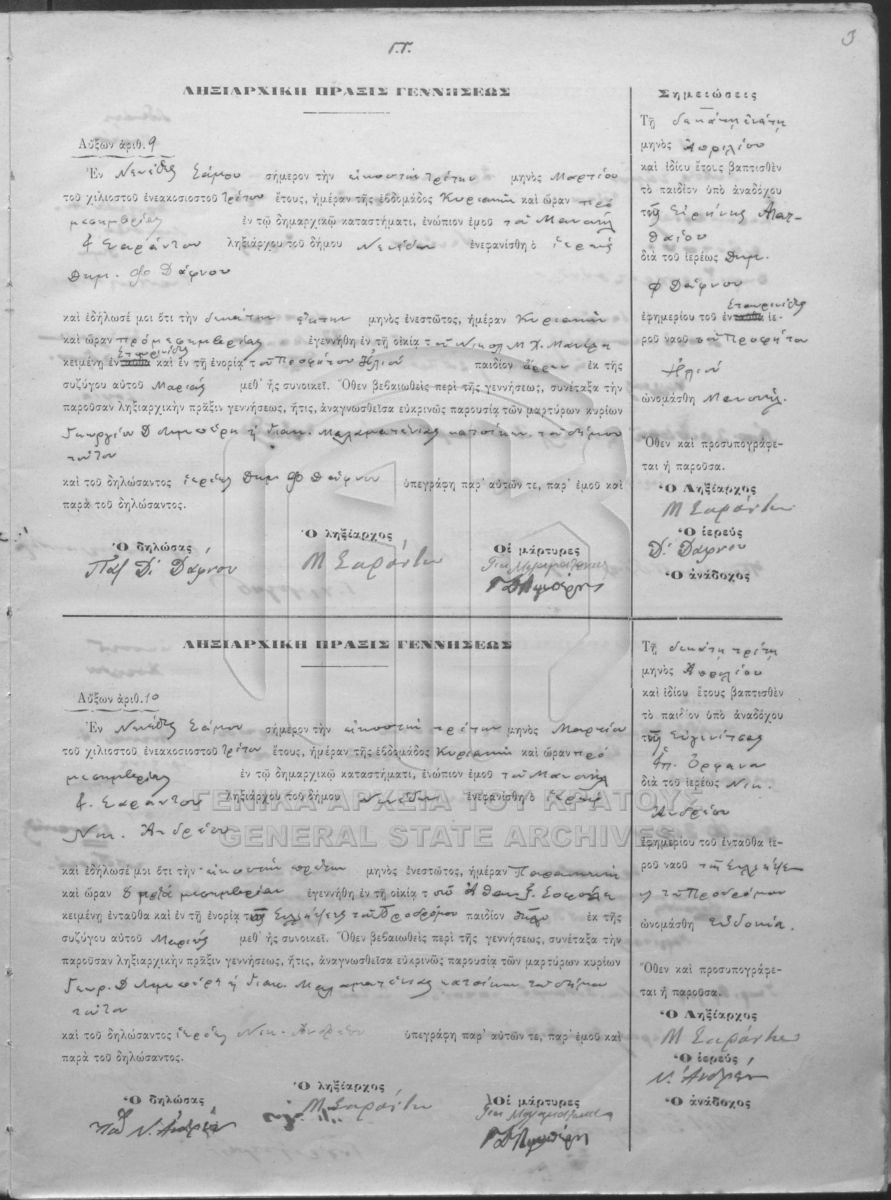 Γ.Γ.
3
ΛΗΞΙΑΡΧΙΚΗ ΠΡΑΞΙΣ ΓΕΝΝΗΣΕΩΣ
Αὔξων ἀριθ. 9
Ἐν Νενέδες Σάμου σήμερον τὴν εἰκοστὴν τρίτην μηνὸς Μαρτίου
τοῦ χιλιοστοῦ ἐνεακοσιοστοῦ τρίτου ἔτους, ἡμέραν τῆς ἑβδομάδος Κυριακὴν καὶ ὥραν πρὸ
μεσημβρίας ἐν τῷ δημαρχικῷ καταστήματι, ἐνώπιον ἐμοῦ τοῦ Μανουὴλ
Σαράντου ληξιάρχου τοῦ δήμου ἐνεφανίσθη ὁ ἱερεὺς
Δημ. Φ Δάφνου
καὶ ἐδήλωσέ μοι ὅτι τὴν δεκάτην ἕκτην μηνὸς ἐνεστῶτος, ἡμέραν Κυριακὴν
καὶ ὥραν πρὸ μεσημβρίας ἐγεννήθη ἐν τῇ οἰκίᾳ τοῦ Νικολ. Μ. Χ.
κειμένῃ ἐν Σταυρινίδες καὶ ἐν τῇ ἐνορίᾳ τοῦ Προφήτου Ἠλιού παιδίον ἄρρεν ἐκ τῆς
συζύγου αὐτοῦ Μαρίας μεθ' ἧς συνοικεῖ. Ὅθεν βεβαιωθεὶς περὶ τῆς γεννήσεως, συνέταξα τὴν
παροῦσαν ληξιαρχικὴν πρᾶξιν γεννήσεως, ἥτις, ἀναγνωσθεῖσα εὐκρινῶς παρουσίᾳ τῶν μαρτύρων κυρίων
Γεωργίου Δ κατοίκων τοῦ δήμου
τούτου
καὶ τοῦ δηλώσαντος ἱερέως Δημ Φ Δάφνου ὑπεγράφη παρ' αὐτῶν τε, παρ' ἐμοῦ καὶ
παρὰ τοῦ δηλώσαντος.
Ὁ δηλώσας Ὁ ληξίαρχος Οἱ μάρτυρες
Δάφνου Μ Σαράντου
Σημειώσεις
Τῇ δεκάτῃ ἐνάτῃ
μηνὸς Ἀπριλίου
καὶ ἰδίου ἔτους βαπτισθὲν
τὸ παιδίον ὑπὸ ἀναδόχου
τῆς Εἰρήνης Ματ-
θαίου
διὰ τοῦ ἱερέως Δημ.
Φ Δάφνου
ἐφημερίου τοῦ ἐν Σταυρινίδες ἱε-
ροῦ ναοῦ τοῦ Προφήτου
Ἠλιού
ὠνομάσθη Μανουήλ.
Ὅθεν καὶ προσυπογράφε-
ται ἡ παροῦσα.
Ὁ Ληξίαρχος
Μ Σαράντου
Ὁ ἱερεὺς
Δ. Δάφνου
Ὁ ἀνάδοχος
ΛΗΞΙΑΡΧΙΚΗ ΠΡΑΞΙΣ ΓΕΝΝΗΣΕΩΣ
Αὔξων ἀριθ. 10
Ἐν Νενέδες Σάμου σήμερον τὴν εἰκοστὴν τρίτην μηνὸς Μαρτίου
τοῦ χιλιοστοῦ ἐνεακοσιοστοῦ τρίτου ἔτους, ἡμέραν τῆς ἑβδομάδος Κυριακὴν καὶ ὥραν πρὸ
μεσημβρίας ἐν τῷ δημαρχικῷ καταστήματι, ἐνώπιον ἐμοῦ τοῦ Μανουὴλ
Σαράντου ληξιάρχου τοῦ δήμου ἐνεφανίσθη ὁ ἱερεὺς
Νικ. Ἀνδρέου
καὶ ἐδήλωσέ μοι ὅτι τὴν εἰκοστὴν πρώτην μηνὸς ἐνεστῶτος, ἡμέραν Παρασκευὴν
καὶ ὥραν μετὰ μεσημβρίαν ἐγεννήθη ἐν τῇ οἰκίᾳ τοῦ
κειμένῃ ἐνταῦθα καὶ ἐν τῇ ἐνορίᾳ τῆς Συλλήψεως τοῦ Προδρόμου παιδίον θῆλυ ἐκ τῆς
συζύγου αὐτοῦ Μαρίας μεθ' ἧς συνοικεῖ. Ὅθεν βεβαιωθεὶς περὶ τῆς γεννήσεως, συνέταξα τὴν
παροῦσαν ληξιαρχικὴν πρᾶξιν γεννήσεως, ἥτις, ἀναγνωσθεῖσα εὐκρινῶς παρουσίᾳ τῶν μαρτύρων κυρίων
Γεωρ. Δ κατοίκων τοῦ δήμου
τούτου
καὶ τοῦ δηλώσαντος ἱερέως Νικ. Ἀνδρέου ὑπεγράφη παρ' αὐτῶν τε, παρ' ἐμοῦ καὶ
παρὰ τοῦ δηλώσαντος.
Ὁ δηλώσας Ὁ ληξίαρχος Οἱ μάρτυρες
Ν. Ἀνδρέου Μ Σαράντου
Τῇ δεκάτῃ τρίτῃ
μηνὸς Ἀπριλίου
καὶ ἰδίου ἔτους βαπτισθὲν
τὸ παιδίον ὑπὸ ἀναδόχου
τῆς Εὐγενίτσας
Ὀρφανα
διὰ τοῦ ἱερέως Νικ.
Ἀνδρέου
ἐφημερίου τοῦ ἐνταῦθα ἱε-
ροῦ ναοῦ τῆς Συλλήψεω
ς τοῦ Προδρόμου
ὠνομάσθη Εὐδοκία.
Ὅθεν καὶ προσυπογράφε-
ται ἡ παροῦσα.
Ὁ Ληξίαρχος
Μ Σαράντου
Ὁ ἱερεὺς
Ν. Ἀνδρέου
Ὁ ἀνάδοχος
ΓΕΝΙΚΑ ΑΡΧΕΙΑ ΤΟΥ ΚΡΑΤΟΥΣ
GENERAL STATE ARCHIVES